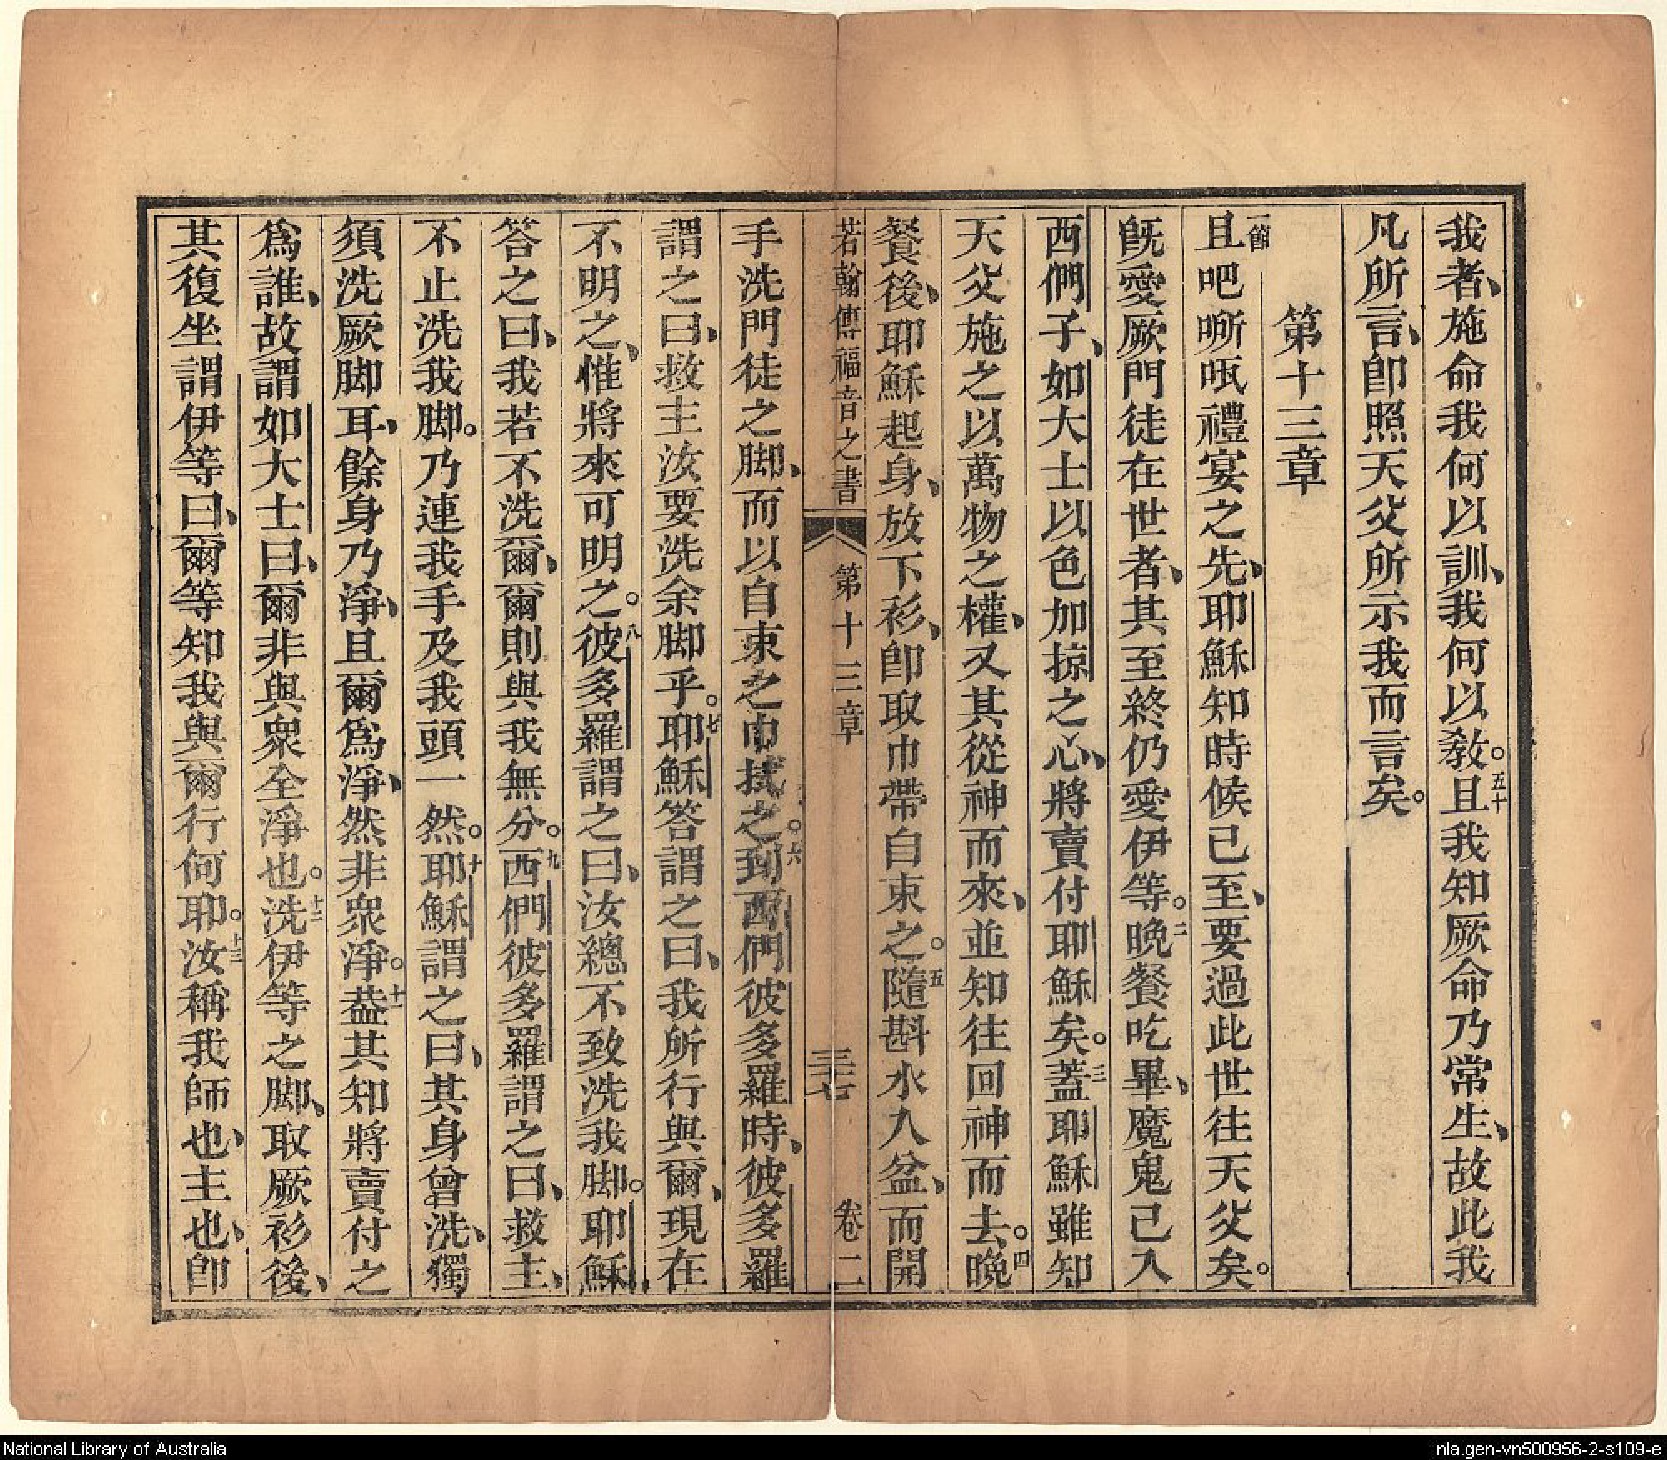 我者、施命我何以訓、我何以敎。五十且我知厥命乃常生、故此我
凡所言、卽照天父所示我而言矣。
第十三章
一節且吧㗭㕶禮宴之先、耶穌知時候已至、要過此世往天父矣。
旣愛厥門徒在世者、其至終仍愛伊等。二晚餐吃畢、魔鬼已入
西們子、如大士以色加掠之心、將賣付耶穌矣。三蓋耶穌雖知
天父施之以萬物之權、又其從神而來、並知往回神而去。四晚
餐後、耶穌起身、放下衫、卽取巾帶自束之。五隨斟水入盆、而開
若翰傳福音之書 第十三章 三七 卷二
手洗門徒之脚、而以自束之巾拭之。六到西們彼多羅時、彼多羅
謂之曰、救主汝要洗余脚乎。七耶穌答謂之曰、我所行與爾、現在
不明之、惟將來可明之。八彼多羅謂之曰、汝總不致洗我脚。耶穌
答之曰、我若不洗爾、爾則與我無分。九西們彼多羅謂之曰、救主、
不止洗我脚。乃連我手及我頭一然。十耶穌謂之曰、其身曾洗、獨
須洗厥脚耳、餘身乃淨、且爾爲淨、然非衆淨。十一葢其知將賣付之
爲誰、故謂如大士曰、爾非與衆全淨也。十二洗伊等之脚、取厥衫後、
其復坐謂伊等曰、爾等知我與爾行何耶。十三汝稱我師也、主也、卽
National Library of Australia
nla.gen-vn500956-2-s109-e